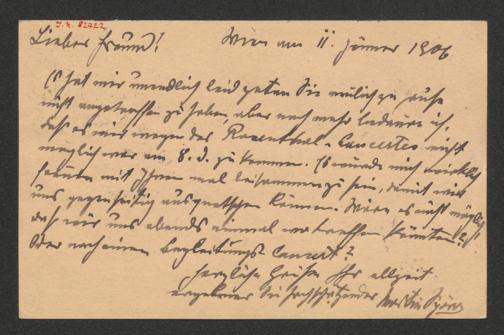 I.N. 82722
Lieber Freund! Wien am 11. Jänner 1906
Es hat mir unendlich leid gethan Sie neulich zu Hause
nicht angetroffen zu haben, aber noch mehr bedaure ich,
daß es mir wegen des Rosenthal-Concertes nicht
möglich war am 8. d. zu kommen. Es würde mich wirklich
freuen mit Ihnen mal beisammen zu sein, damit wir
uns gegenseitig ausquatschen können. Wäre es nicht möglich
daß wir uns abends einmal wo treffen könnten?
Oder nach einem Concert?
Herzliche Grüße Ihr allzeit
ergebener Sie hochschätzender